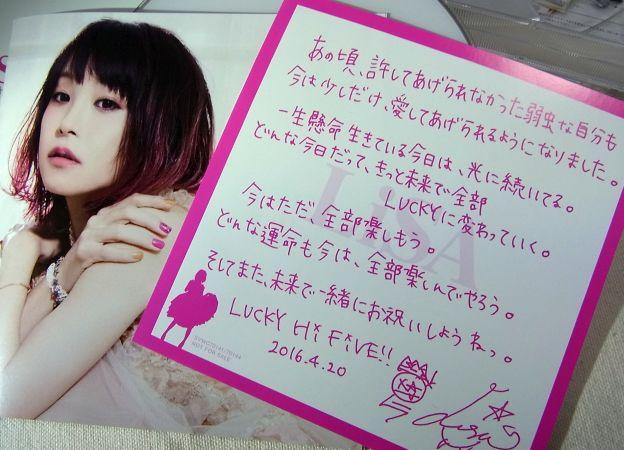 あの頃、許してあげられなかった弱虫な自分も
今は少しだけ、愛してあげられるようになりました。
一生懸命生きている今日は、光に続いてる。
どんな今日だって、きっと未来で全部
LUCKYに変わっていく。
今はただ全部楽しもう。
どんな運命も今は、全部楽しんでやろう。
そしてまた、未来で一緒にお祝いしようねっ。
LUCKY Hi FiVE!!
2016.4.20
LiSA
NOT FOR SALE
LiSA